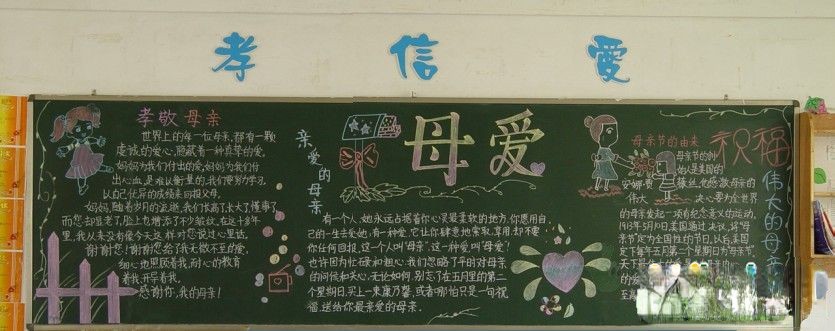 孝 信 愛
孝敬母亲
世界上的每一位母亲,都有一颗
虔诚的爱心,隐藏着一种真挚的爱,
妈妈为我们付出的爱,妈妈为我们付
出心血,是难以衡量的,我们要努力学习,
以自己优异的成绩来回报父母。
妈妈,随着岁月的流逝,我们长高了,长大了,懂事了,
而您却眼老了,脸上也增添了不少皱纹,在这十多年
里,我从来没有像今天这样对您说过心里话,
谢谢您!谢谢您给了我无微不至的爱,
细心地照顾着我,耐心的教育
着我,开导着我。
感谢你,我的母亲!
亲爱的母亲
母爱
有一个人,她永远占据着你心灵最柔软的地方,你愿用自
己的一生去爱她;有一种爱,它让你肆意地索取、享用,却不要
你任何回报,这一个人叫“母亲”,这一种爱,叫“母爱”!
也许因为忙碌和粗心,我们忽略了平时对母亲
的问候和关心,无论如何,别忘了在五月里的第二
个星期日,买上一束康乃馨,或者哪怕只是一句祝
福,送给你最亲爱的母亲。
母亲节的由来
母亲节的创
始人是美国的
安娜·贾
薇丝,她感激母亲的
伟大
决心要为全世界
的母亲发起一项有纪念意义的运动,
1913年5月10日美国通过决议,将“母
亲节”定为全国性的节日,以后,美国
定下每年五月第二个星期日为“母亲节”,
天下
祝福
伟大的母亲